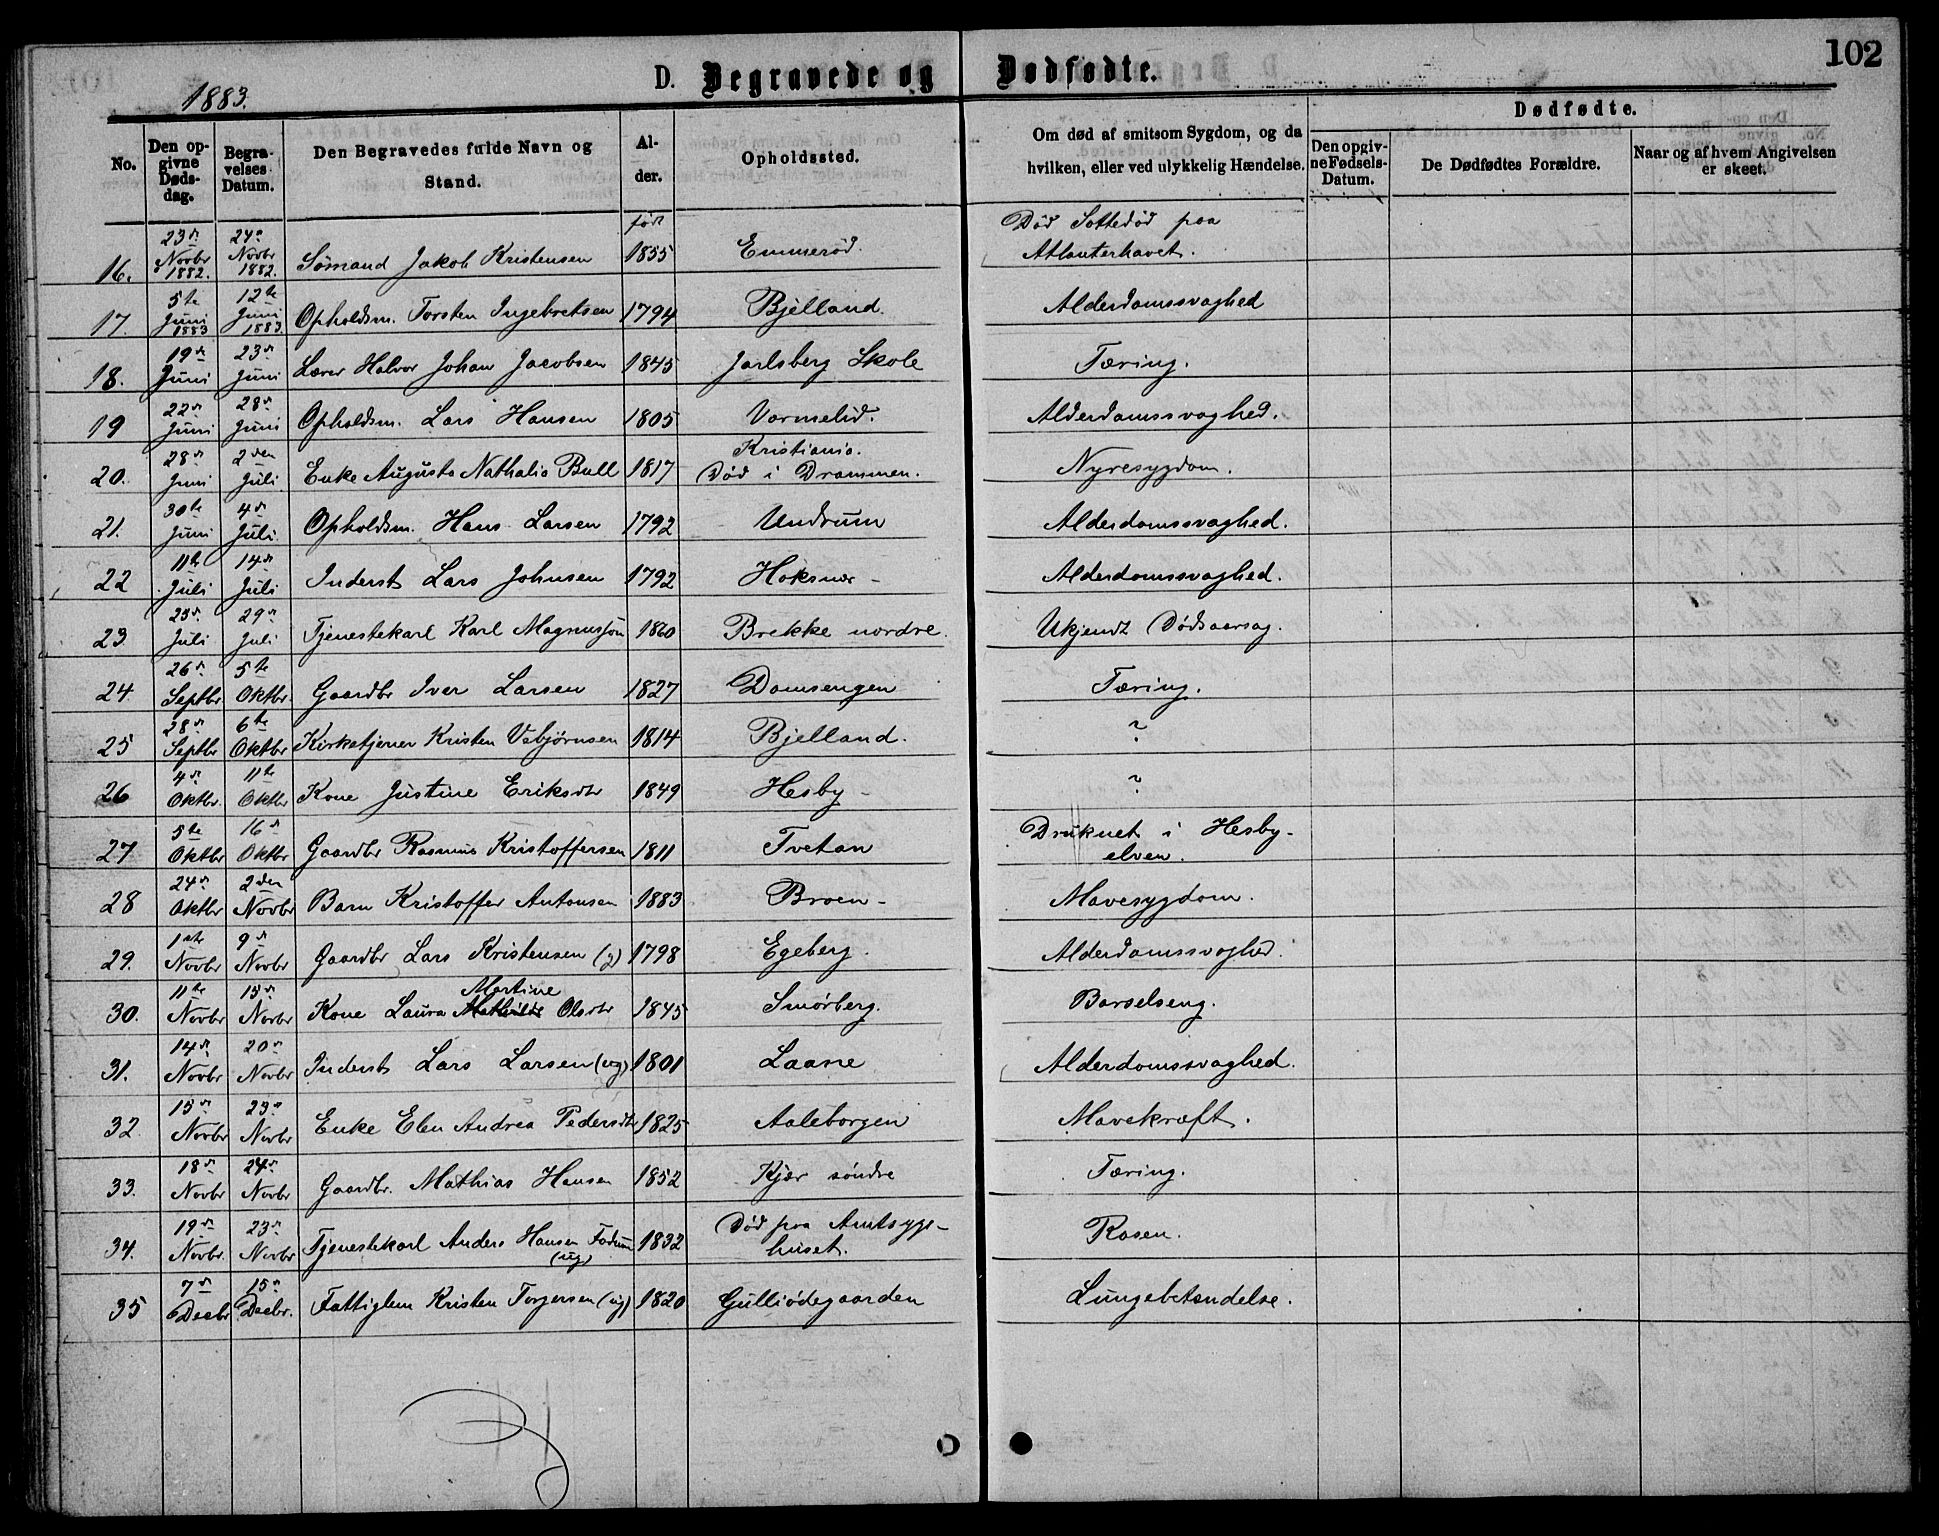 102
D. Begravede og Dødfødte.
1883.
No.
Den opgivne Dødsdag.
Begravelses Datum.
Den Begravedes fulde Navn og Stand.
Alder.
Opholdssted.
Om død af smitsom Sygdom, og da hvilken, eller ved ulykkelig Hændelse.
Dødfødte.
Den opgivne Fødsels-Datum.
De Dødfødtes Forældre.
Naar og af hvem Angivelsen er skeet.
født
16. 23de Novbr 1882. 24de Novbr 1882. Sømand Jakob Kristensen 1855 Emmerød. Død Sottedød paa Atlanterhavet.
17. 5te Juni 1883 12te Juni 1883. Opholdsm. Torsten Ingebretsen 1794 Bjelland. Alderdomssvaghed
18. 19de Juni 23de Juni Lærer Halvor Johan Jacobsen 1845 Jarlsberg Skole Tæring.
19 22de Juni 28de Juni Opholdsm. Lars Hansen 1805 Varmelid. Alderdomssvaghed.
20. 28de Juni 2den Juli Enke Augusta Nathalia Bull 1817 Kristiania. Død i Drammen. Nyresygdom.
21. 30te Juni 4de Juli. Opholdsm. Hans Larsen 1792 Undrum Alderdomssvaghed.
22 11te Juli 14de Juli Inderst Lars Johnsen 1792 Haksnær - Alderdomssvaghed.
23 25de Juli 29de Juli Tjenestekarl Karl Magnussøn 1860 Brekke nordre. Ukjendt Dødsaarsag.
24. 26de Septbr 5te Oktbr. Gaardbr Iver Larsen 1827 Domsengen Tæring.
25 28de Septbr 6te Oktbr Kirketjener Kristen Vebjørnsen 1814 Bjelland. ?
26 4de Oktbr. 11te Oktbr Kone Justine Eriksdtr 1849 Hesby - ?
27 5te Oktbr 16de Oktbr Gaardbr Rasmus Kristoffersen 1811 Tvetan Druknet i Hesby-elven.
28 24de Oktbr 2den Novbr Barn Kristoffer Antonsen 1883 Broen - Mavesygdom.
29. 1ste Novbr 9de Novbr Gaardbr Lars Kristensen (g) 1798 Egeberg. Alderdomssvaghed.
30. 11te Novbr 15de Novbr Kone Laura Mathilde Martine Olsdtr 1845 Smørberg. Barselseng.
31. 14de Novbr 20de Novbr Inderst Lars Larsen (ug) 1801 Laane Alderdomssvaghed.
32 15de Novbr 23de Novbr Enke Elen Andrea Pedersdtr 1825 Aaleborgen Mavekræft.
33. 18de Novbr 24de Novbr Gaardbr. Mathias Hansen 1852 Kjær søndre Tæring.
34. 19de Novbr. 23de Novbr Tjenestekarl Anders Hansen Fadum (ug) 1832 Død paa Amtsygehuset. Rosen.
35 7de Decbr 15de Decbr. Fattiglem Kristen Torgersen (ug) 1820 Gulliødegaarden Lungebetændelse.